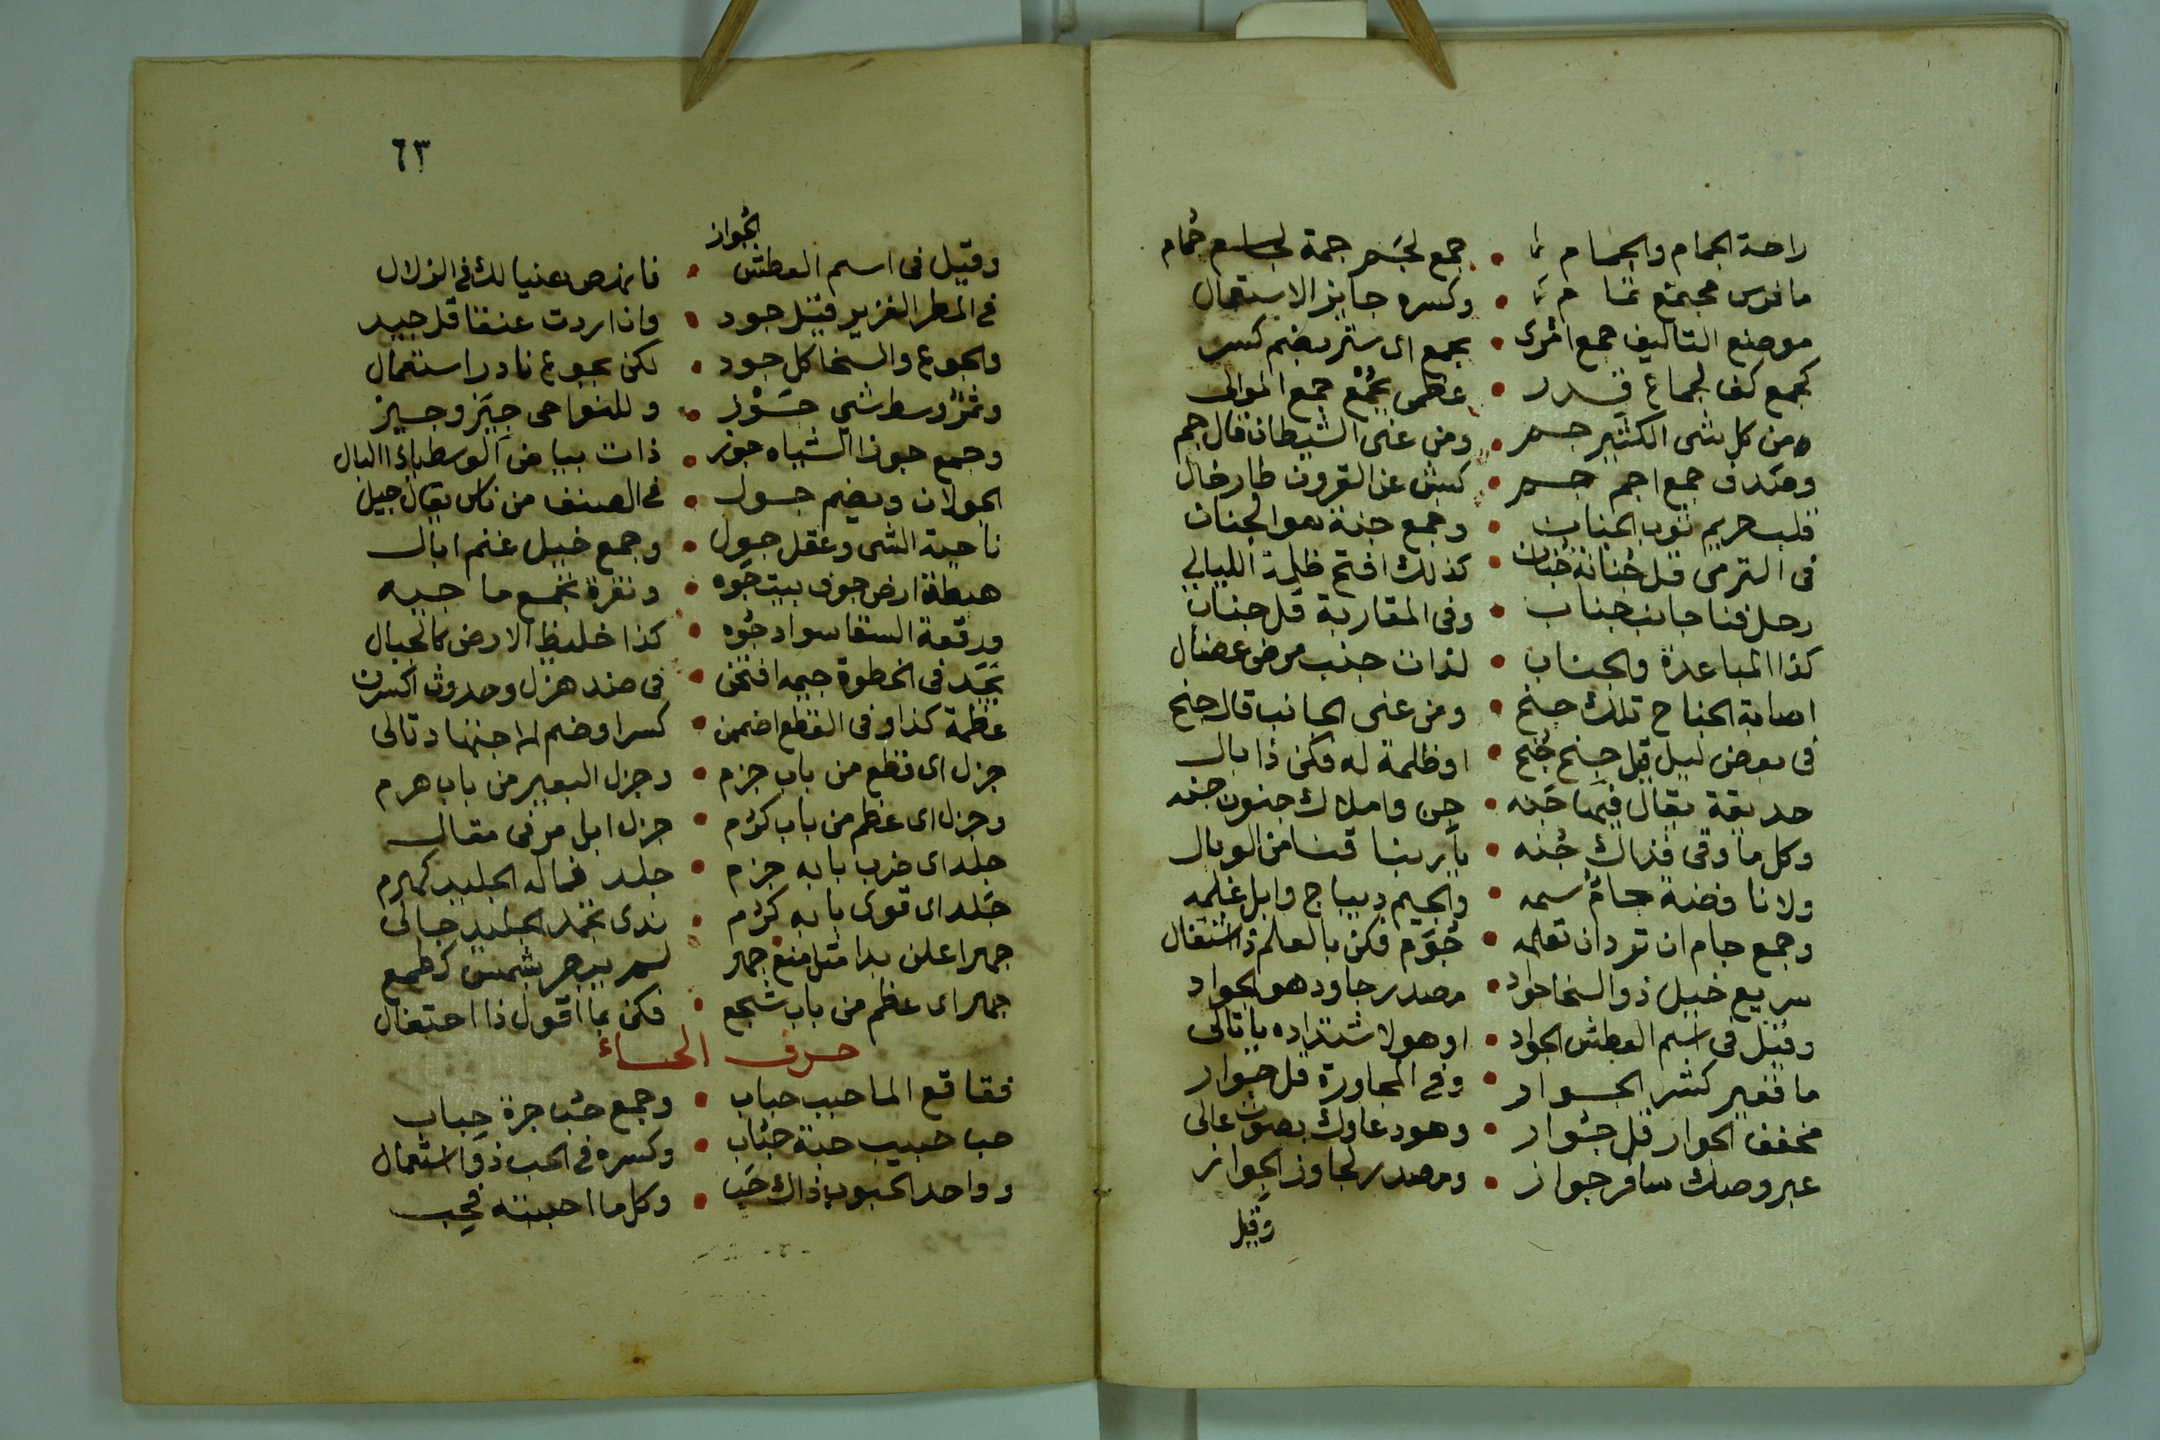 راحة الجمام والجمام • جمع لجم جمة جمام
ما فوس مجتمع • وكسره جايز الاستعمال
موضع التاليف جمع اخرى • بجمع اى ستر بضم كسر
كجمع كف لجماع قدر • عظمى بجُمْع جمع الموالى
ومن كل شى الكثير جم • ومن عنى الشيطان قال جم
وصَدف جمع اجم جم • كبش عن القرون طار خال
قلب حريم ثوب الجنان • وجمع جنة هو الجنان
فى الترمى قل جُنانة جُنان • كذلك افتح ظلمة الليالي
رحل فنا جانب جناب • وفى المقاربة قل جناب
كذا المباعدة والجناب • لذات جنب مرض عضال
اصابة الجناح تلك جنح • ومن عنى الجانب قال جنح
فى بعض ليل قيل جِنح جُنح • او ظلمة له فكن ذا بال
حديقة يقال فيها جَنه • جن واملاك جنون جنه
وكل ما وقى فذاك جُنه • يا ربنا قنا من الوبال
ولانا فضة جام سمه • والجيم ديباج وابل غلمه
وجمع جام ان ترد ان تعلمه • جُوَم فكن بالعلم ذا اشتغال
سريع خيل ذو السخا جواد • مصدر جاود هو الجواد
وقيل فى اسم العطش الجواد • او هو لاشتداده يا تالى
ما قعير كثر الجوار • وفى المجاورة قل جوار
مخفف الجوار قل جؤار • وهو دعاوك بصوت عالى
عبر وصك سافر جواز • ومصدر لجاوز الجواز
وقيل
٦٣
الجُواز
وقيل فى اسم العطش • فانهض عنيا لك فى الزلال
فى المطر الغزير قيل جود • وان اردت عنقا قل جيد
والجوع والسخا كل جود • لكن بجوع نادر استعمال
وثمرٌ وسط شي جَوْز • وللنواحى جِيَز وجيز
وجمع جوزا الشياه جوز • ذات بياض الوسط ياذا البال
الجولان ويضم جول • فى الصنف من ناس يقال جيل
ناحية الشى وعقل جول • وجمع خيل غنم ابال
هبطة ارض جوف بيت جَوه • ونقرة بجمع ما جيه
ورقعة السقا سواد جُوه • كذا غليظ الارض كالجبال
يَجَد فى الخطوة جيمه افتحن • فى ضد هزل وحدوث اكسرن
عظمة كذا وفى القطع اضممن • كسرا وضم اجتنها د تالى
جزل اى قطع من باب جزم • وجزل البعير من باب هرم
وجزل اى عظم من باب كرُم • جزل ابل مر فى مقال
جلد اى ضرب بابه جزم • جلد فماله الجليد كهرم
جَلد اى قوى بابه كرُم • ندى تجمد الجليد جالى
جهرا علن بدا مثل منع جهر • لم يبصر بشمس كطمع
جهر اى عظم من باب شجع • فكن بما اقول ذا احتفال
حرف الحاء
فقاقع الما حبب حباب • وجمع حُب جرة حِباب
حبا حبيب حبة حُباب • وكسره فى الحب ذو استعمال
وواحد الحبوب ذاك حَب • وكل ما احببته فحِب